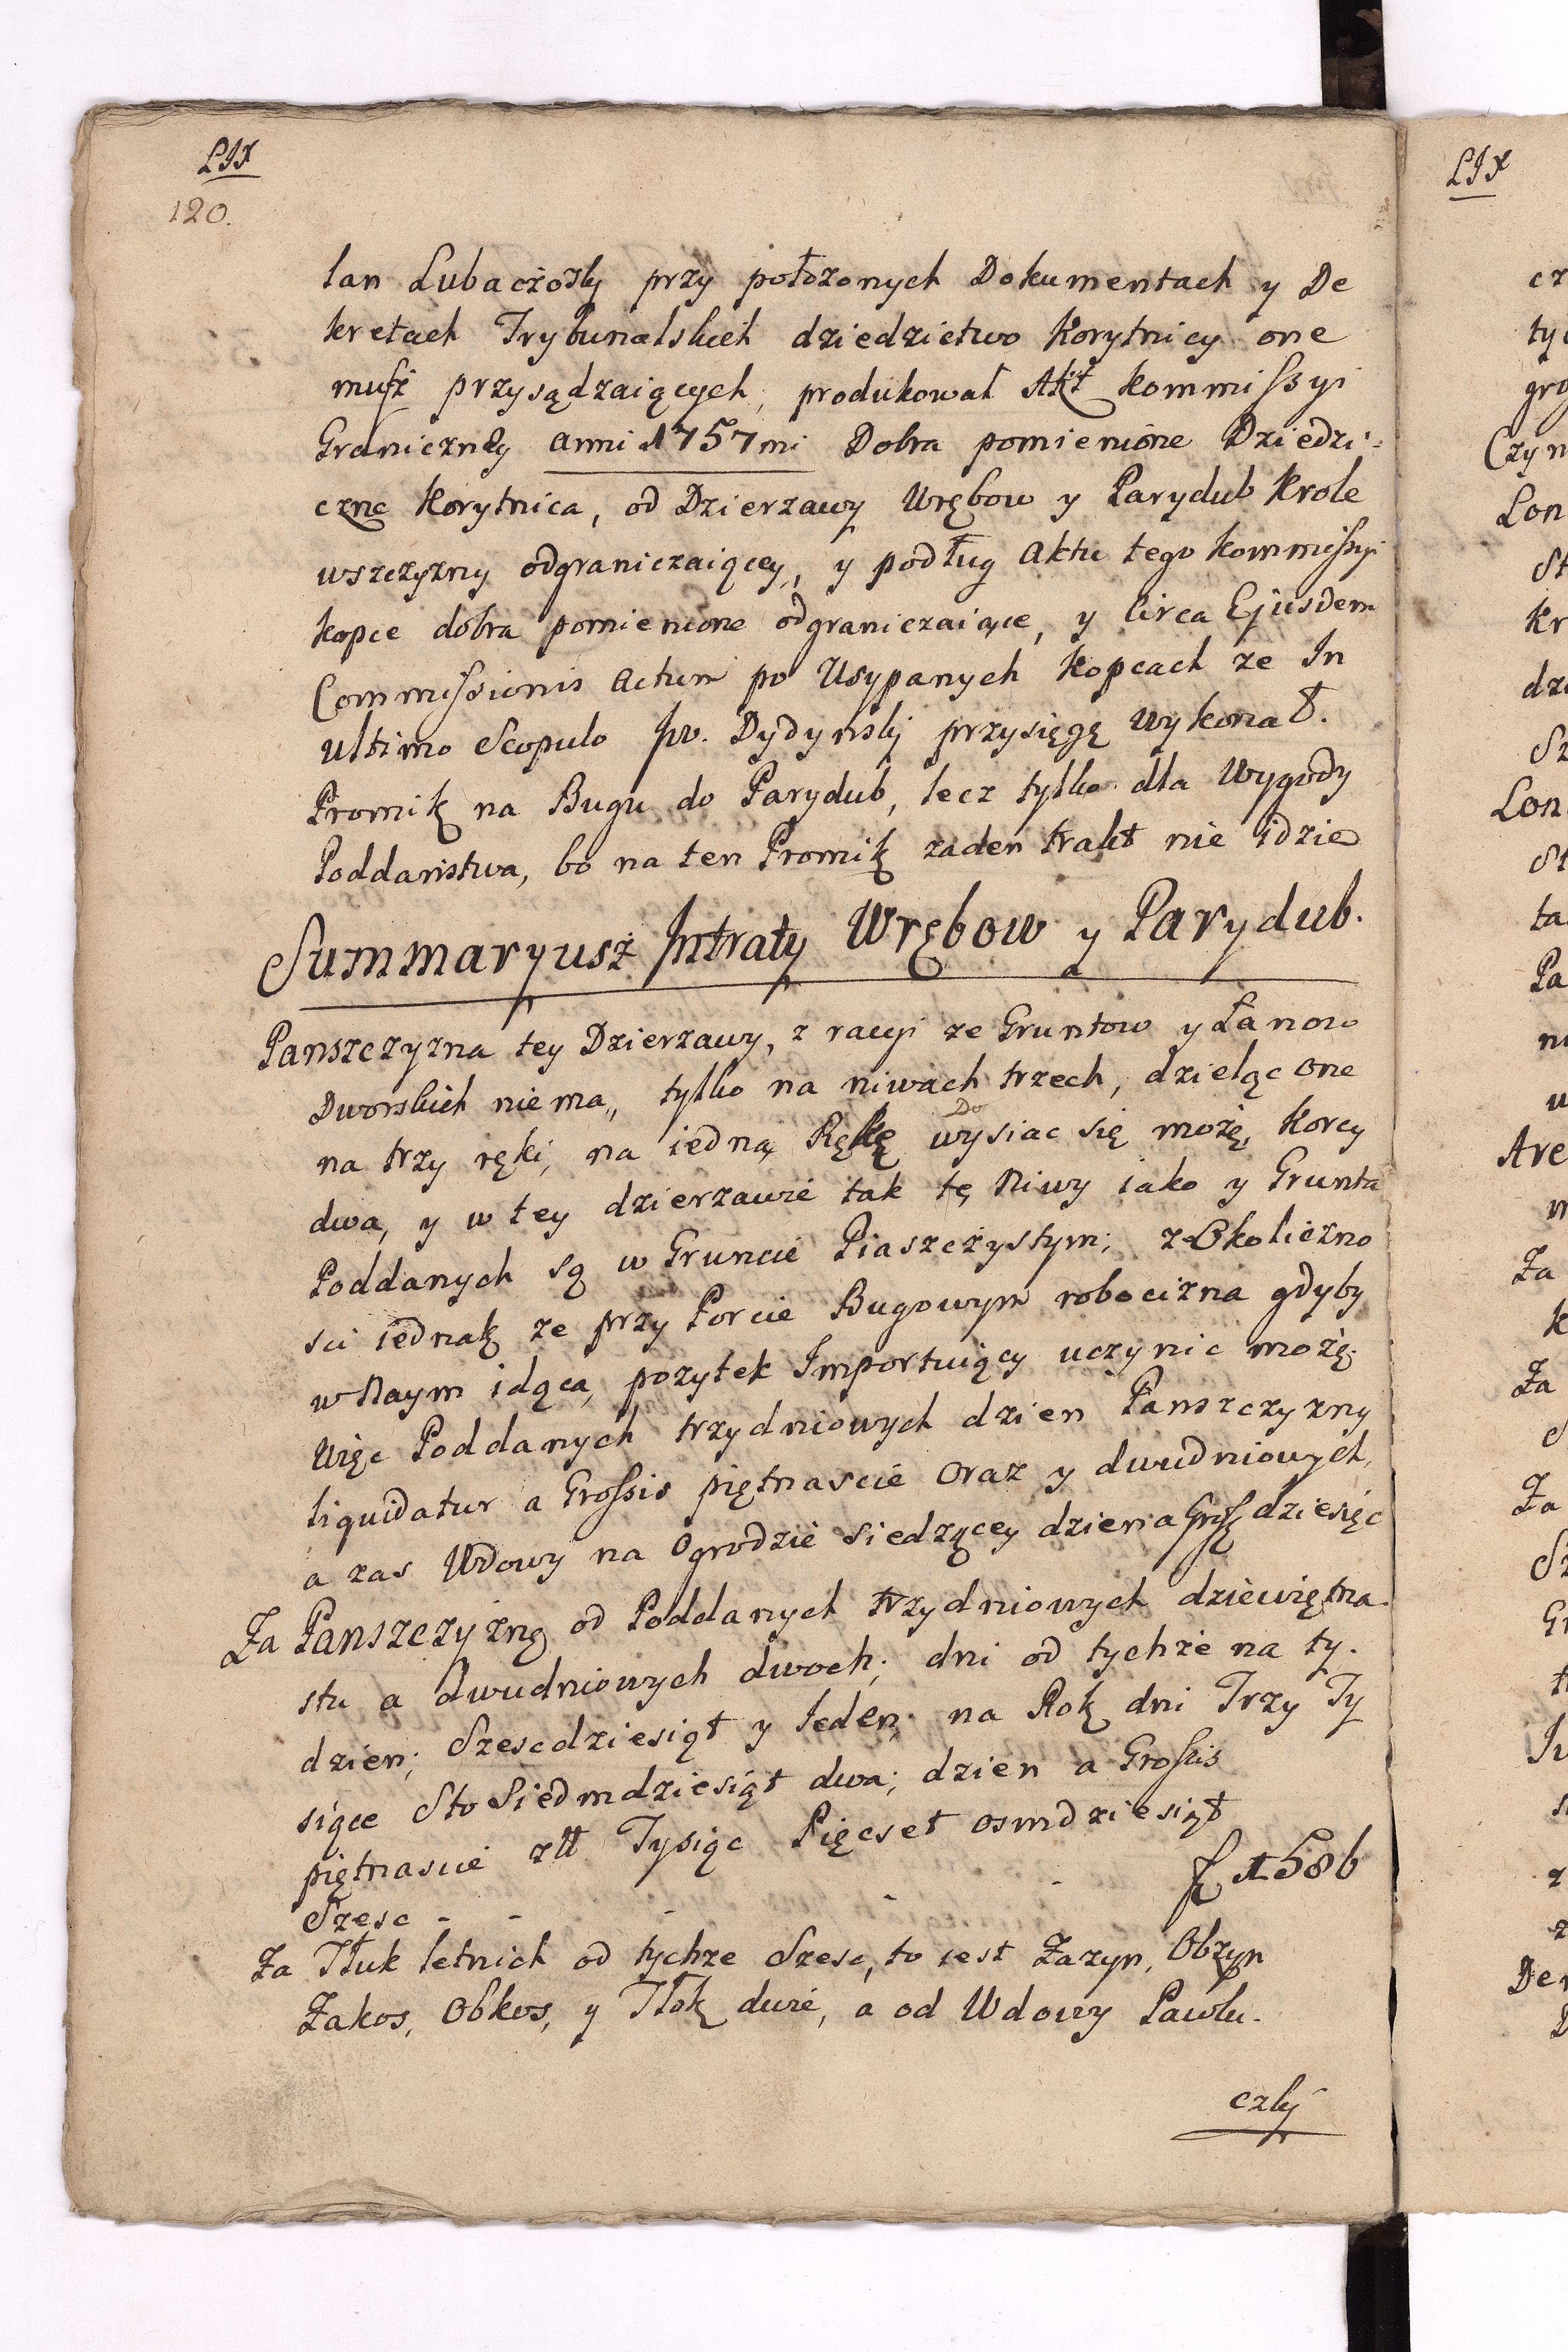 LIX
120.
lan Lubaczoski przy położonych Dokumentach y De
kretach Trybunalskich dziedzictwo Korytnicy one
musz przysądzaiących, produkował Akt Kommissyi
Graniczney anni 1757mi Dobra pomienione Dziedzi=
czne Korytnica, od Dzierzawy Wrębow y Parydub Krole
wszczyzny odgraniczaiącey, y podług Aktu tego Kommissyi
kopce dobra pomienione odgraniczaiące, y Circa Ejusdem
Commissionis Actum po Usypanych Kopcach ze In
ultimo Scopulo Jw. Dydynski przysięgę wykonał.
Promik na Bugu do Parydub, lecz tylko dla Wygody
Poddanstwa, bo na ten Promik zaden trakt nie idzie
Summaryusz Intraty Wrębow y Parydub.
Panszczyzna tey Dzierzawy, z racyi ze Gruntow y Łanow
Dworskich niema, tylko na niwach trzech, dzieląc one
na trzy ręki, na iedną Rękę wysiac się możę Korcy
Do
dwa, y w tey dzierzawie tak tę Niwy iako y Grunta
Poddanych są w Gruncie Piaszczystym; z Okoliczno
sci iednak ze przy Porcie Bugowym robocizna gdyby
w Naym idąca, pozytek Importuiący uczynic możę.
Więc Poddanych trzydniowych dzien Panszczyzny
liquidatur a Grossis piętnascie Oraz y dwudniowych,
a zas Wdowy na Ogrodzie siedzącey dzien a Gross dziesięc
Za Panszczyznę od Poddanych trzydniowych dziewiętna
stu a dwudniowych dwoch; dni od tychże na ty.
dzien; Szescdziesiąt y Ieden; na Rok dni Trzy Ty
siące Sto Siedmdziesiąt dwa; dzien a Grossis
piętnascie złł Tysiąc Pięcset osmdziesiąt
Szesc - - - - - f 1586
Za Tłuk letnich od tychze Szesc, to iest Zazyn, Obzyn
Zakos, Obkos, y Tłok dwie, a od Wdowy Pawlu-
czki